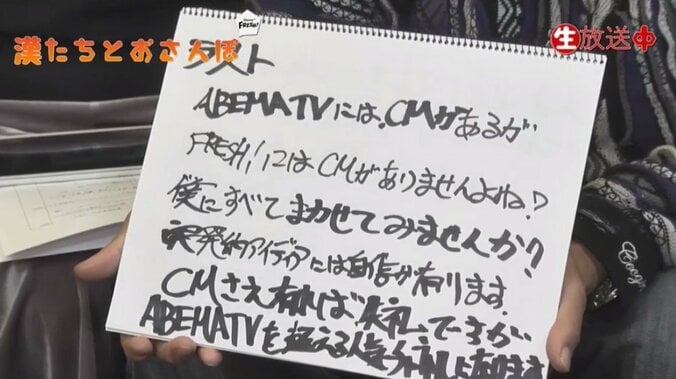 FRESH!
漢たちとおさんぽ
生放送中
テスト
ABEMATVには、CMがあるが
FRESH!にはCMがありませんよね?
僕にすべてまかせてみませんか?
突発的アイディアには自信が有ります。
CMさえ有れば失礼ですが
ABEMATVを超える人気
Coogi